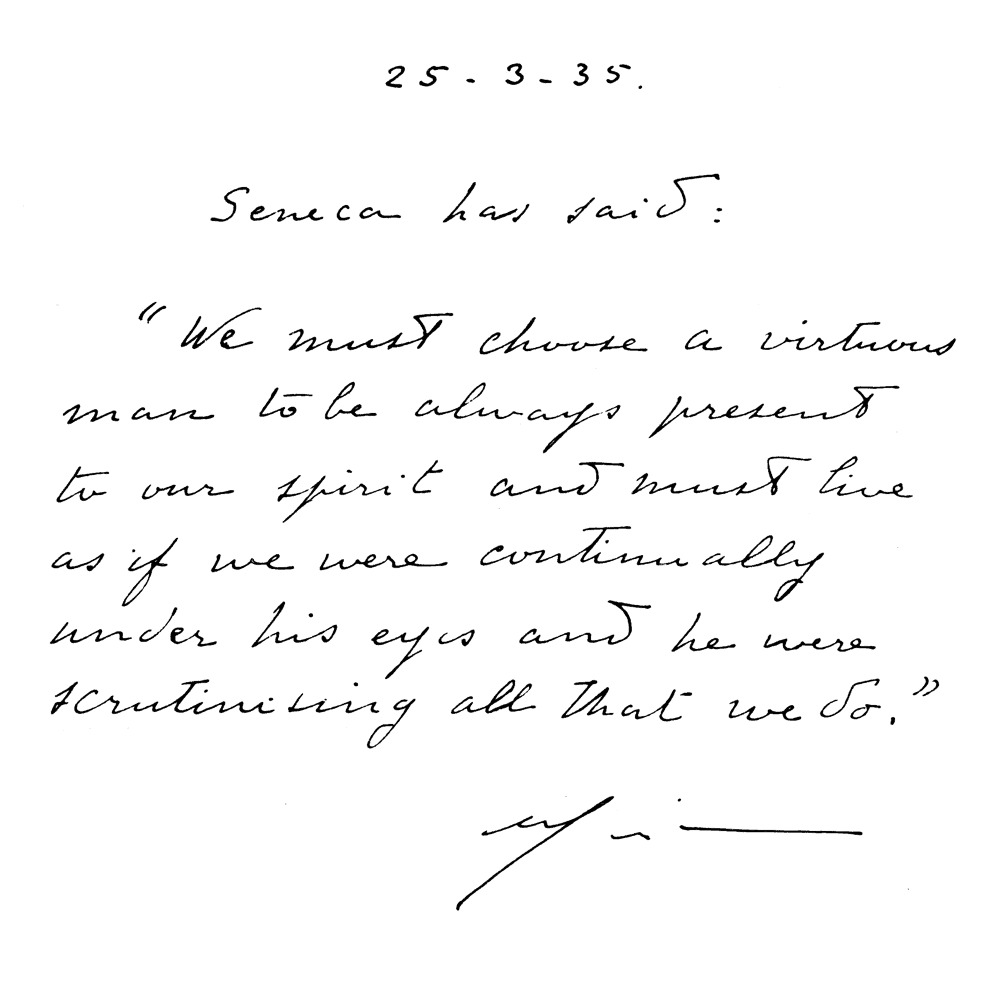 25-3-35.
Seneca has said:
"We must choose a virtuous
man to be always present
to our spirit and must live
as if we were continually
under his eyes and he were
scrutinising all that we do."